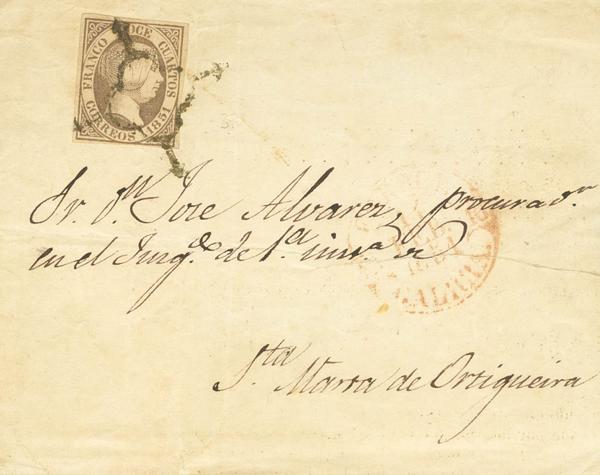 FRANCO DOCE CUARTOS
CORREOS 1851
Sr. Dn. Jose Alvarez, procurador
en el Juzg.do de 1.a inst.a de
GALICIA
Sta. Marta de Ortigueira